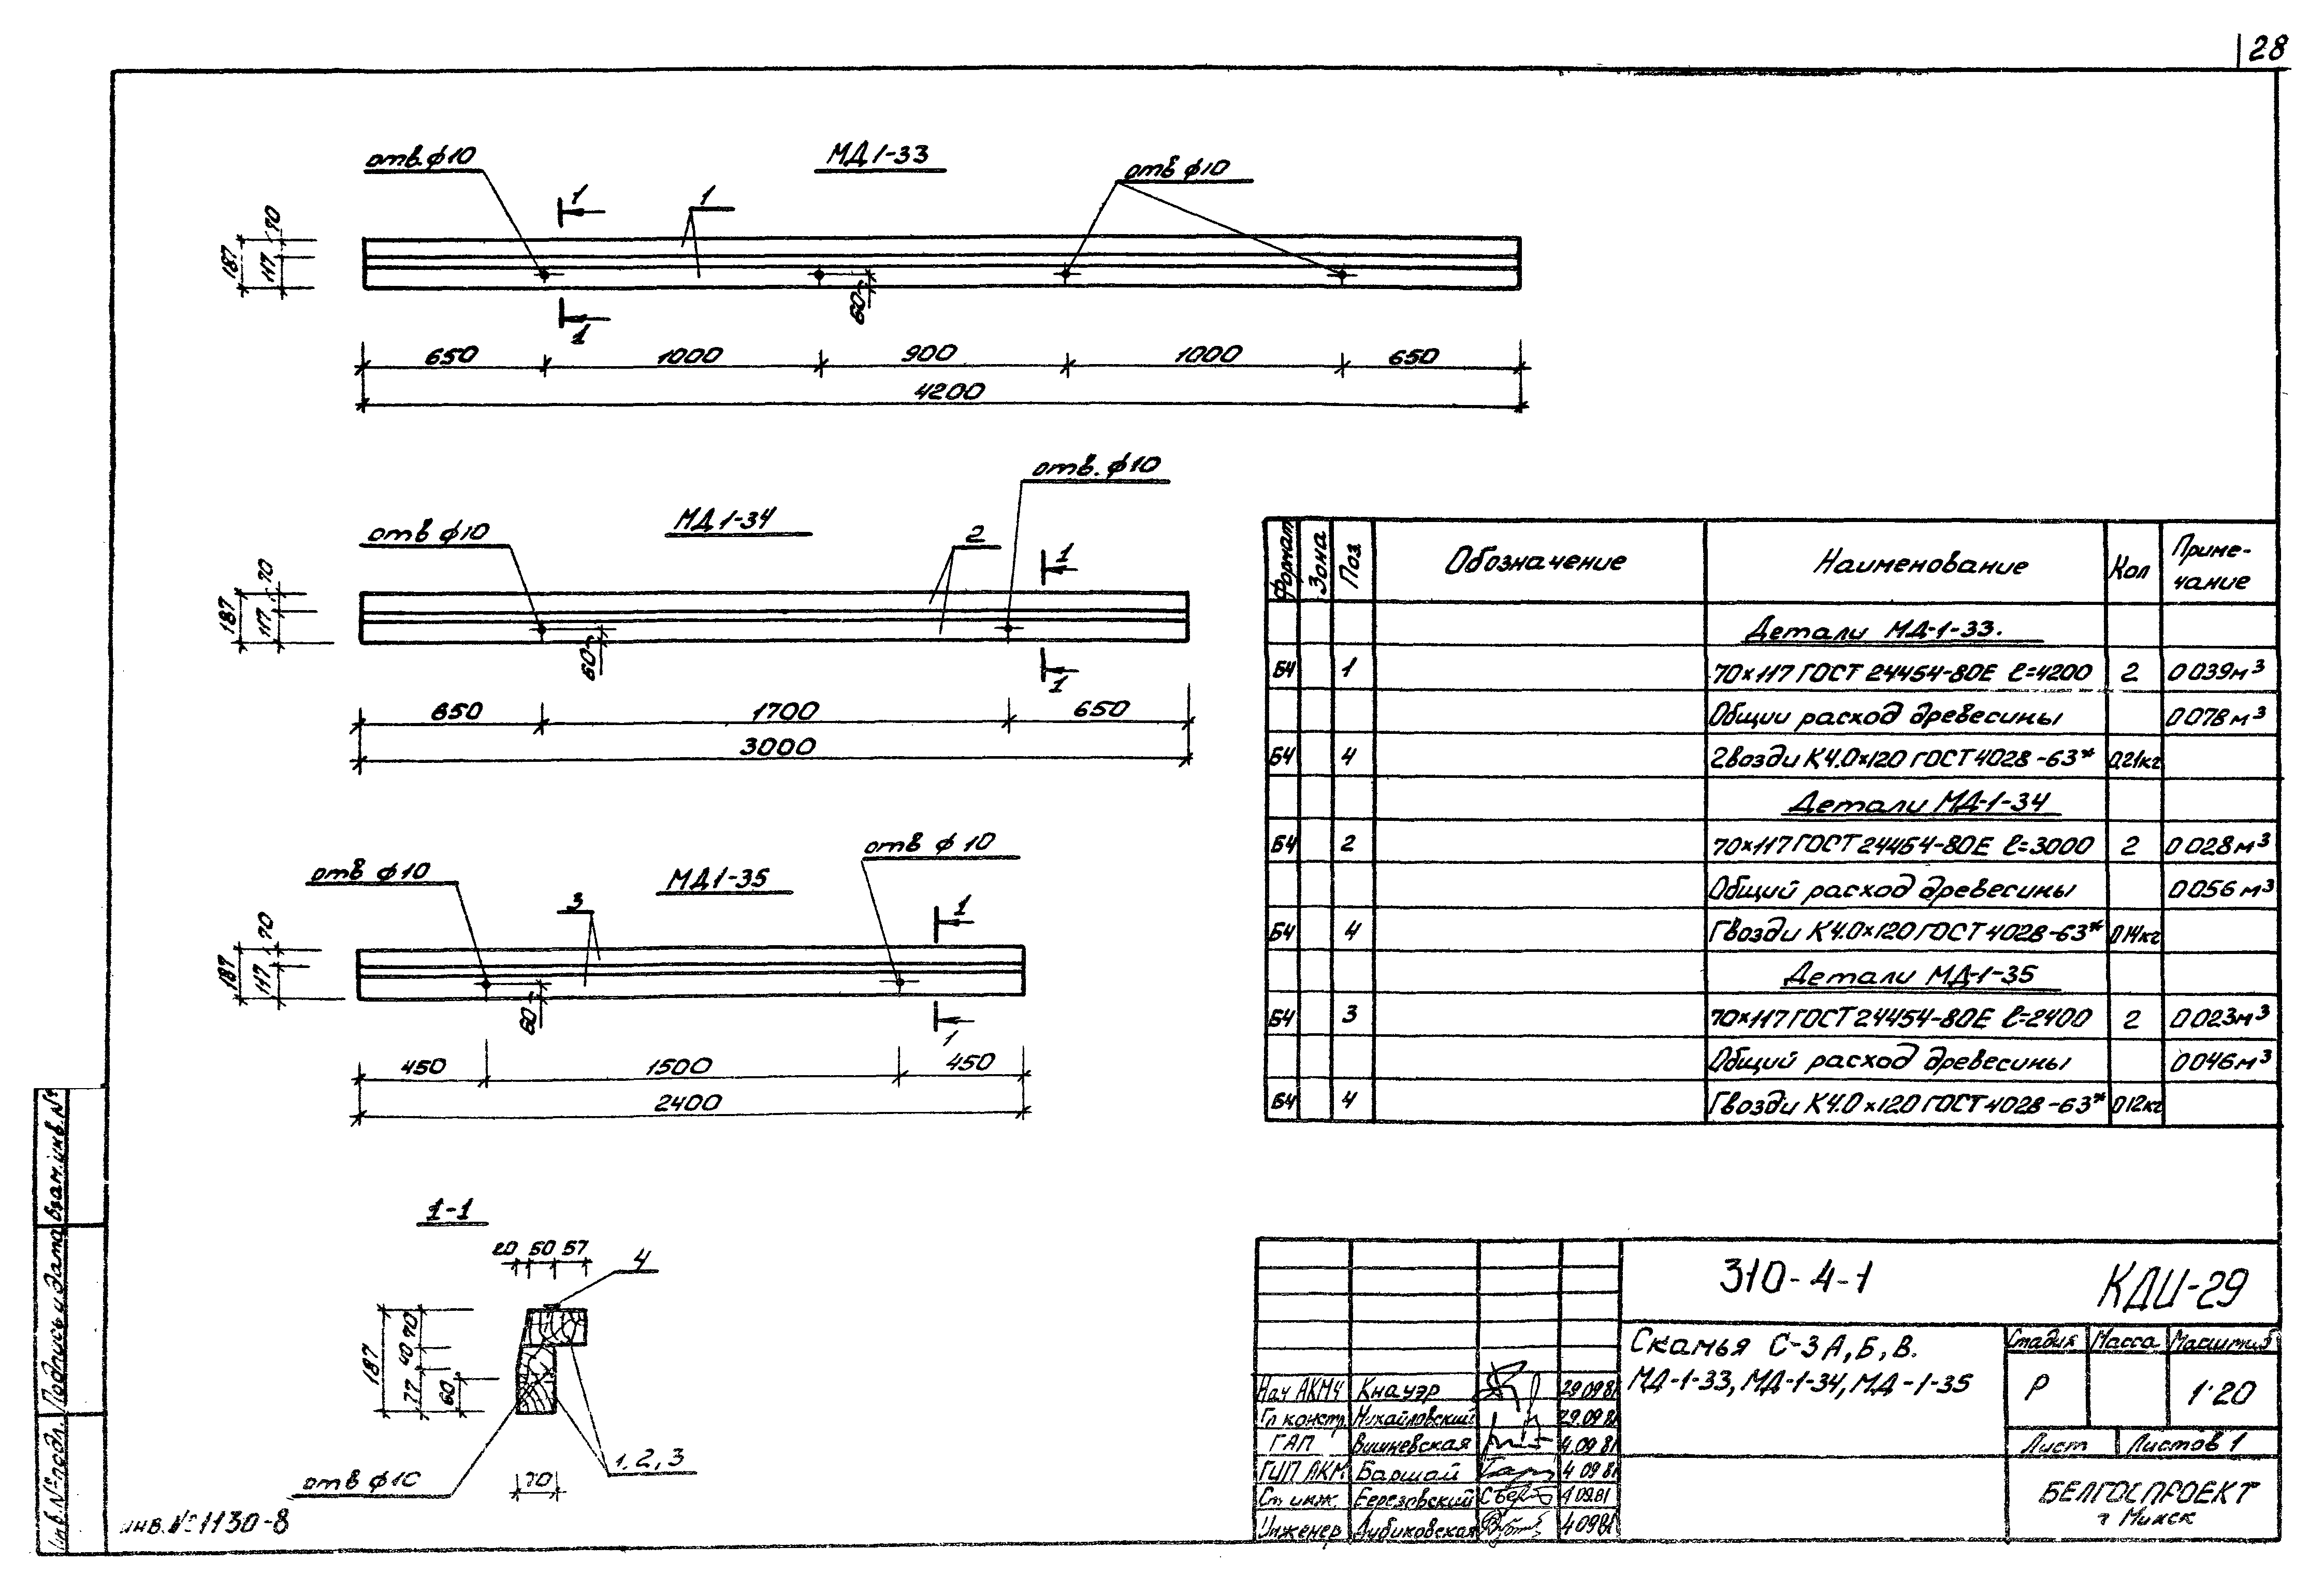 28
МД1-33
отв. ф10
отв ф10
1
1
1
187
117
70
60
650 1000 900 1000 650
4200
МД1-34
отв ф10
отв. ф10
2
1
1
187
117
70
60
650 1700 650
3000
МД1-35
отв ф10
отв ф 10
3
1
1
187
117
70
60
450 1500 450
2400
1-1
20 50 57
4
187
77 40 70
60
70
отв ф10
1,2,3
Формат Зона Поз Обозначение Наименование Кол Приме-
чание
Детали МД-1-33.
Б4 1 70×117 ГОСТ 24454-80Е ℓ=4200 2 0 039м³
Общии расход древесины 0 078м³
Б4 4 Гвозди К4.0×120 ГОСТ 4028-63* 0,21кг
Детали МД-1-34
Б4 2 70×117 ГОСТ 24454-80Е ℓ=3000 2 0 028м³
Общий расход древесины 0 056м³
Б4 4 Гвозди К4.0×120 ГОСТ 4028-63* 0 14кг
Детали МД-1-35
Б4 3 70×117 ГОСТ 24454-80Е ℓ=2400 2 0 023м³
Общий расход древесины 0 046м³
Б4 4 Гвозди К4.0×120 ГОСТ 4028-63* 0 12кг
310-4-1 КДИ-29
Скамья С-3А,Б,В.
МД-1-33, МД-1-34, МД-1-35
Стадия Масса Масштаб
Р 1:20
Лист Листов 1
БЕЛГОСПРОЕКТ
г Минск
Нач АКМЧ Кнауэр 29 09 81
Гл констр. Михайловский 29.09 81
ГАП Вишневская 4.09 81
ГИП АКМ Баршай 4 09 81
Ст инж. Березовский 4 09.81
Инженер Дубиковская 4 09 81
Взам.инв.№
Подпись и дата
Инв.№ подл.
инв. №1130-8